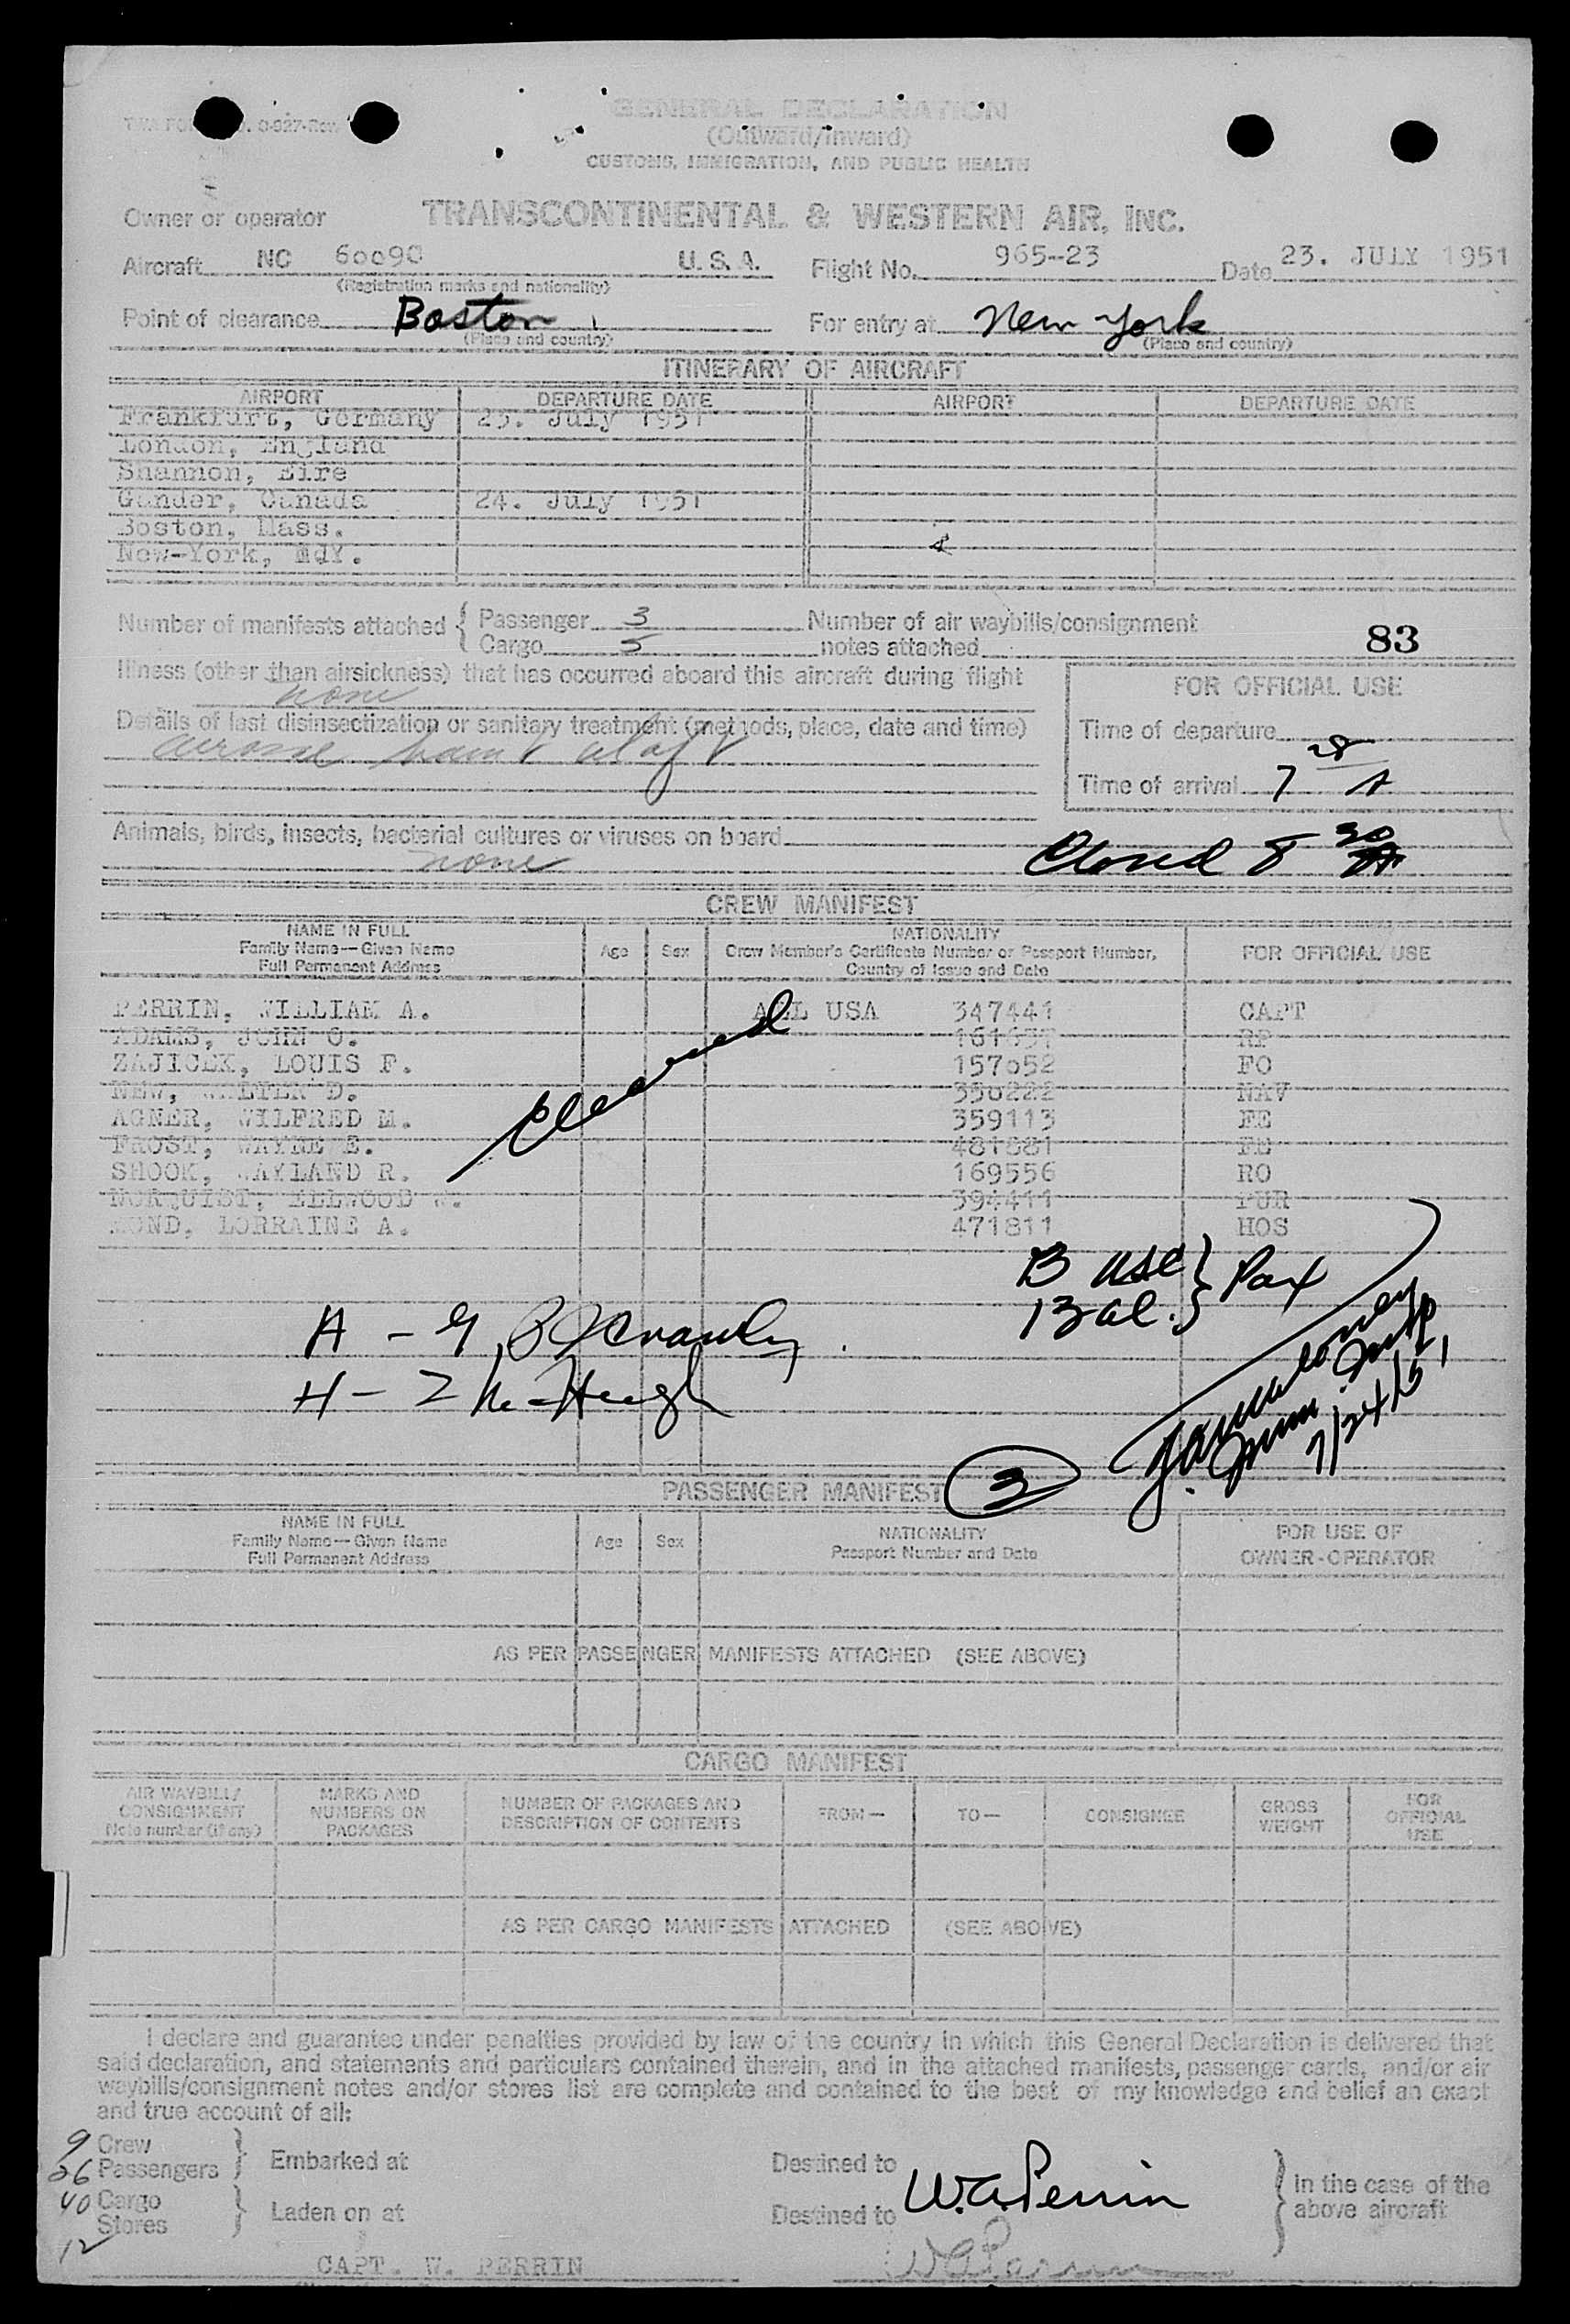 GENERAL DECLARATION
(Outward/Inward)
CUSTOMS, IMMIGRATION, AND PUBLIC HEALTH
Owner or operator TRANSCONTINENTAL & WESTERN AIR, INC.
Aircraft NC 60090 U. S. A. Flight No. 965-23 Date 23. JULY 1951
(Registration marks and nationality)
Point of clearance Boston For entry at New York
(Place and country) (Place and country)
ITINERARY OF AIRCRAFT
AIRPORT DEPARTURE DATE AIRPORT DEPARTURE DATE
Frankfurt, Germany 23. July 1951
London, England
Shannon, Eire
Gander, Canada 24. July 1951
Boston, Mass.
New-York,
Number of manifests attached { Passenger 3 Number of air waybills/consignment
Cargo 5 notes attached
83
Illness (other than airsickness) that has occurred aboard this aircraft during flight
none
FOR OFFICIAL USE
Details of last disinsectization or sanitary treatment (methods, place, date and time)
Time of departure
Time of arrival 7 28 A
Animals, birds, insects, bacterial cultures or viruses on board
none
Closed 8 30
CREW MANIFEST
NAME IN FULL
Family Name—Given Name
Full Permanent Address
Age Sex
NATIONALITY
Crew Member's Certificate Number or Passport Number,
Country of Issue and Date
FOR OFFICIAL USE
PERRIN, WILLIAM A. ALL USA 347441 CAPT
ADAMS, JOHN O. RP
ZAJICEK, LOUIS F. 157652 FO
NEW, WALTER D. 350222 NAV
AGNER, WILFRED M. 359113 FE
FROST, WAYNE E. 481881 FE
SHOOK, WAYLAND R. 169556 RO
NORQUIST, ELLWOOD W. 394411 PUR
MOND, LORRAINE A. 471811 HOS
Cleared
13 USC } Pax
13 al.
A - 9
H - 2 McHugh
7/24/51
3
PASSENGER MANIFEST
NAME IN FULL
Family Name—Given Name
Full Permanent Address
Age Sex
NATIONALITY
Passport Number and Date
FOR USE OF
OWNER-OPERATOR
AS PER PASSENGER MANIFESTS ATTACHED (SEE ABOVE)
CARGO MANIFEST
AIR WAYBILL/
CONSIGNMENT
Note number (if any)
MARKS AND
NUMBERS ON
PACKAGES
NUMBER OF PACKAGES AND
DESCRIPTION OF CONTENTS
FROM— TO— CONSIGNEE
GROSS
WEIGHT
FOR
OFFICIAL
USE
AS PER CARGO MANIFESTS ATTACHED (SEE ABOVE)
I declare and guarantee under penalties provided by law of the country in which this General Declaration is delivered that
said declaration, and statements and particulars contained therein, and in the attached manifests, passenger cards, and/or air
waybills/consignment notes and/or stores list are complete and contained to the best of my knowledge and belief an exact
and true account of all:
9 Crew
26 Passengers } Embarked at Destined to
40 Cargo
Stores } Laden on at Destined to
12
W.A. Perrin
} In the case of the
above aircraft
CAPT. W. PERRIN